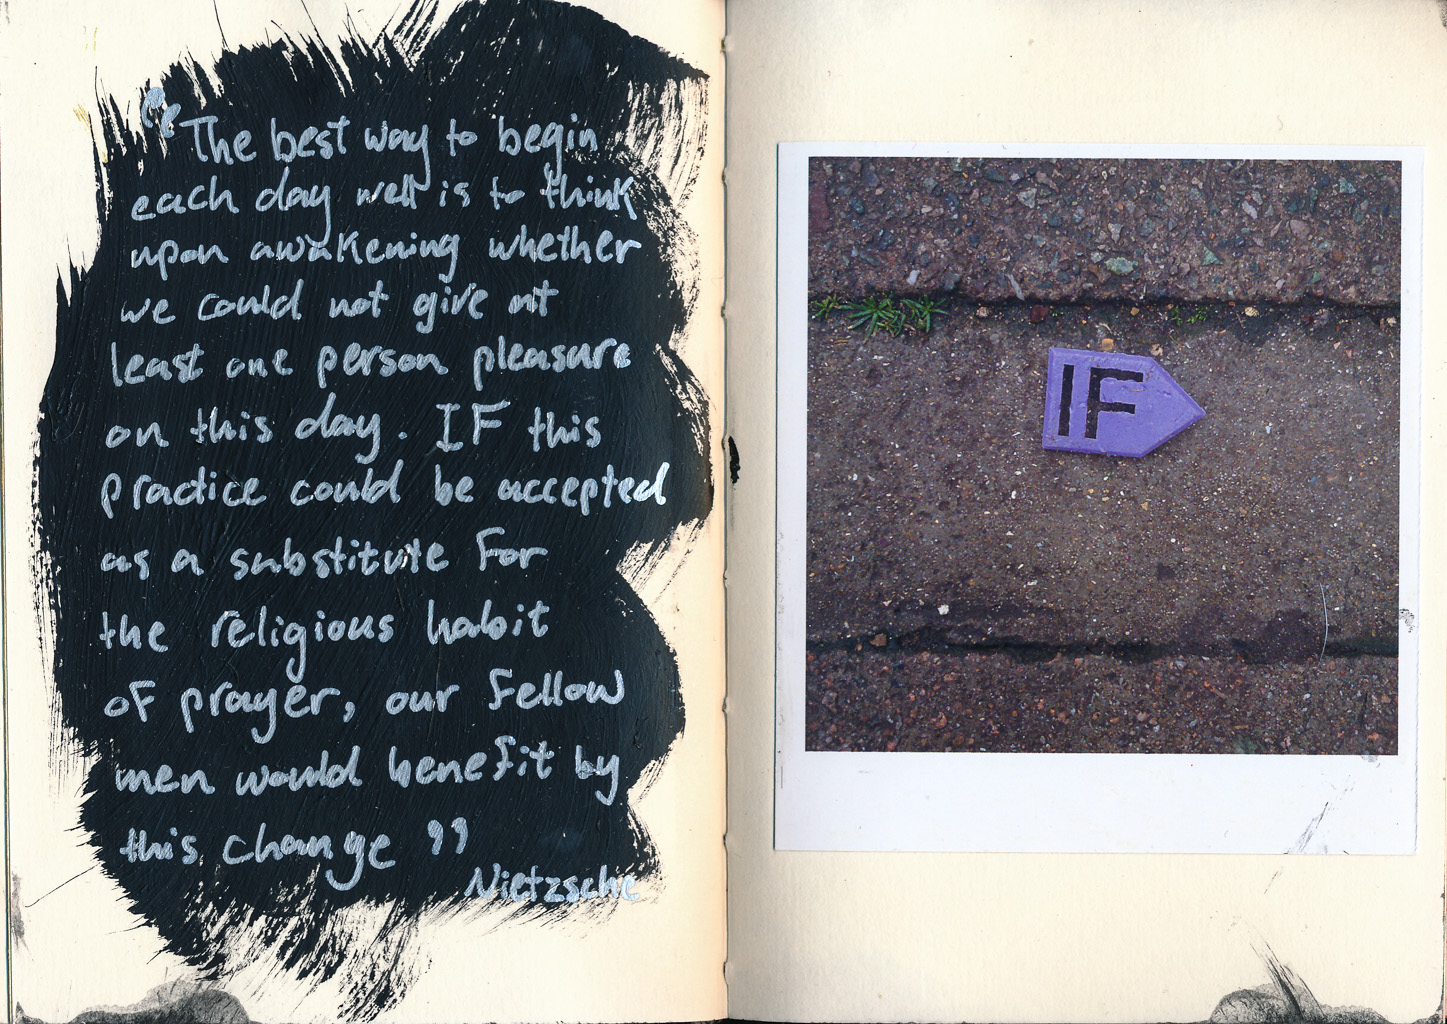 “The best way to begin
each day well is to think
upon awakening whether
we could not give at
least one person pleasure
on this day. IF this
practice could be accepted
as a substitute for
the religious habit
of prayer, our fellow
men would benefit by
this change ”
Nietzsche
IF